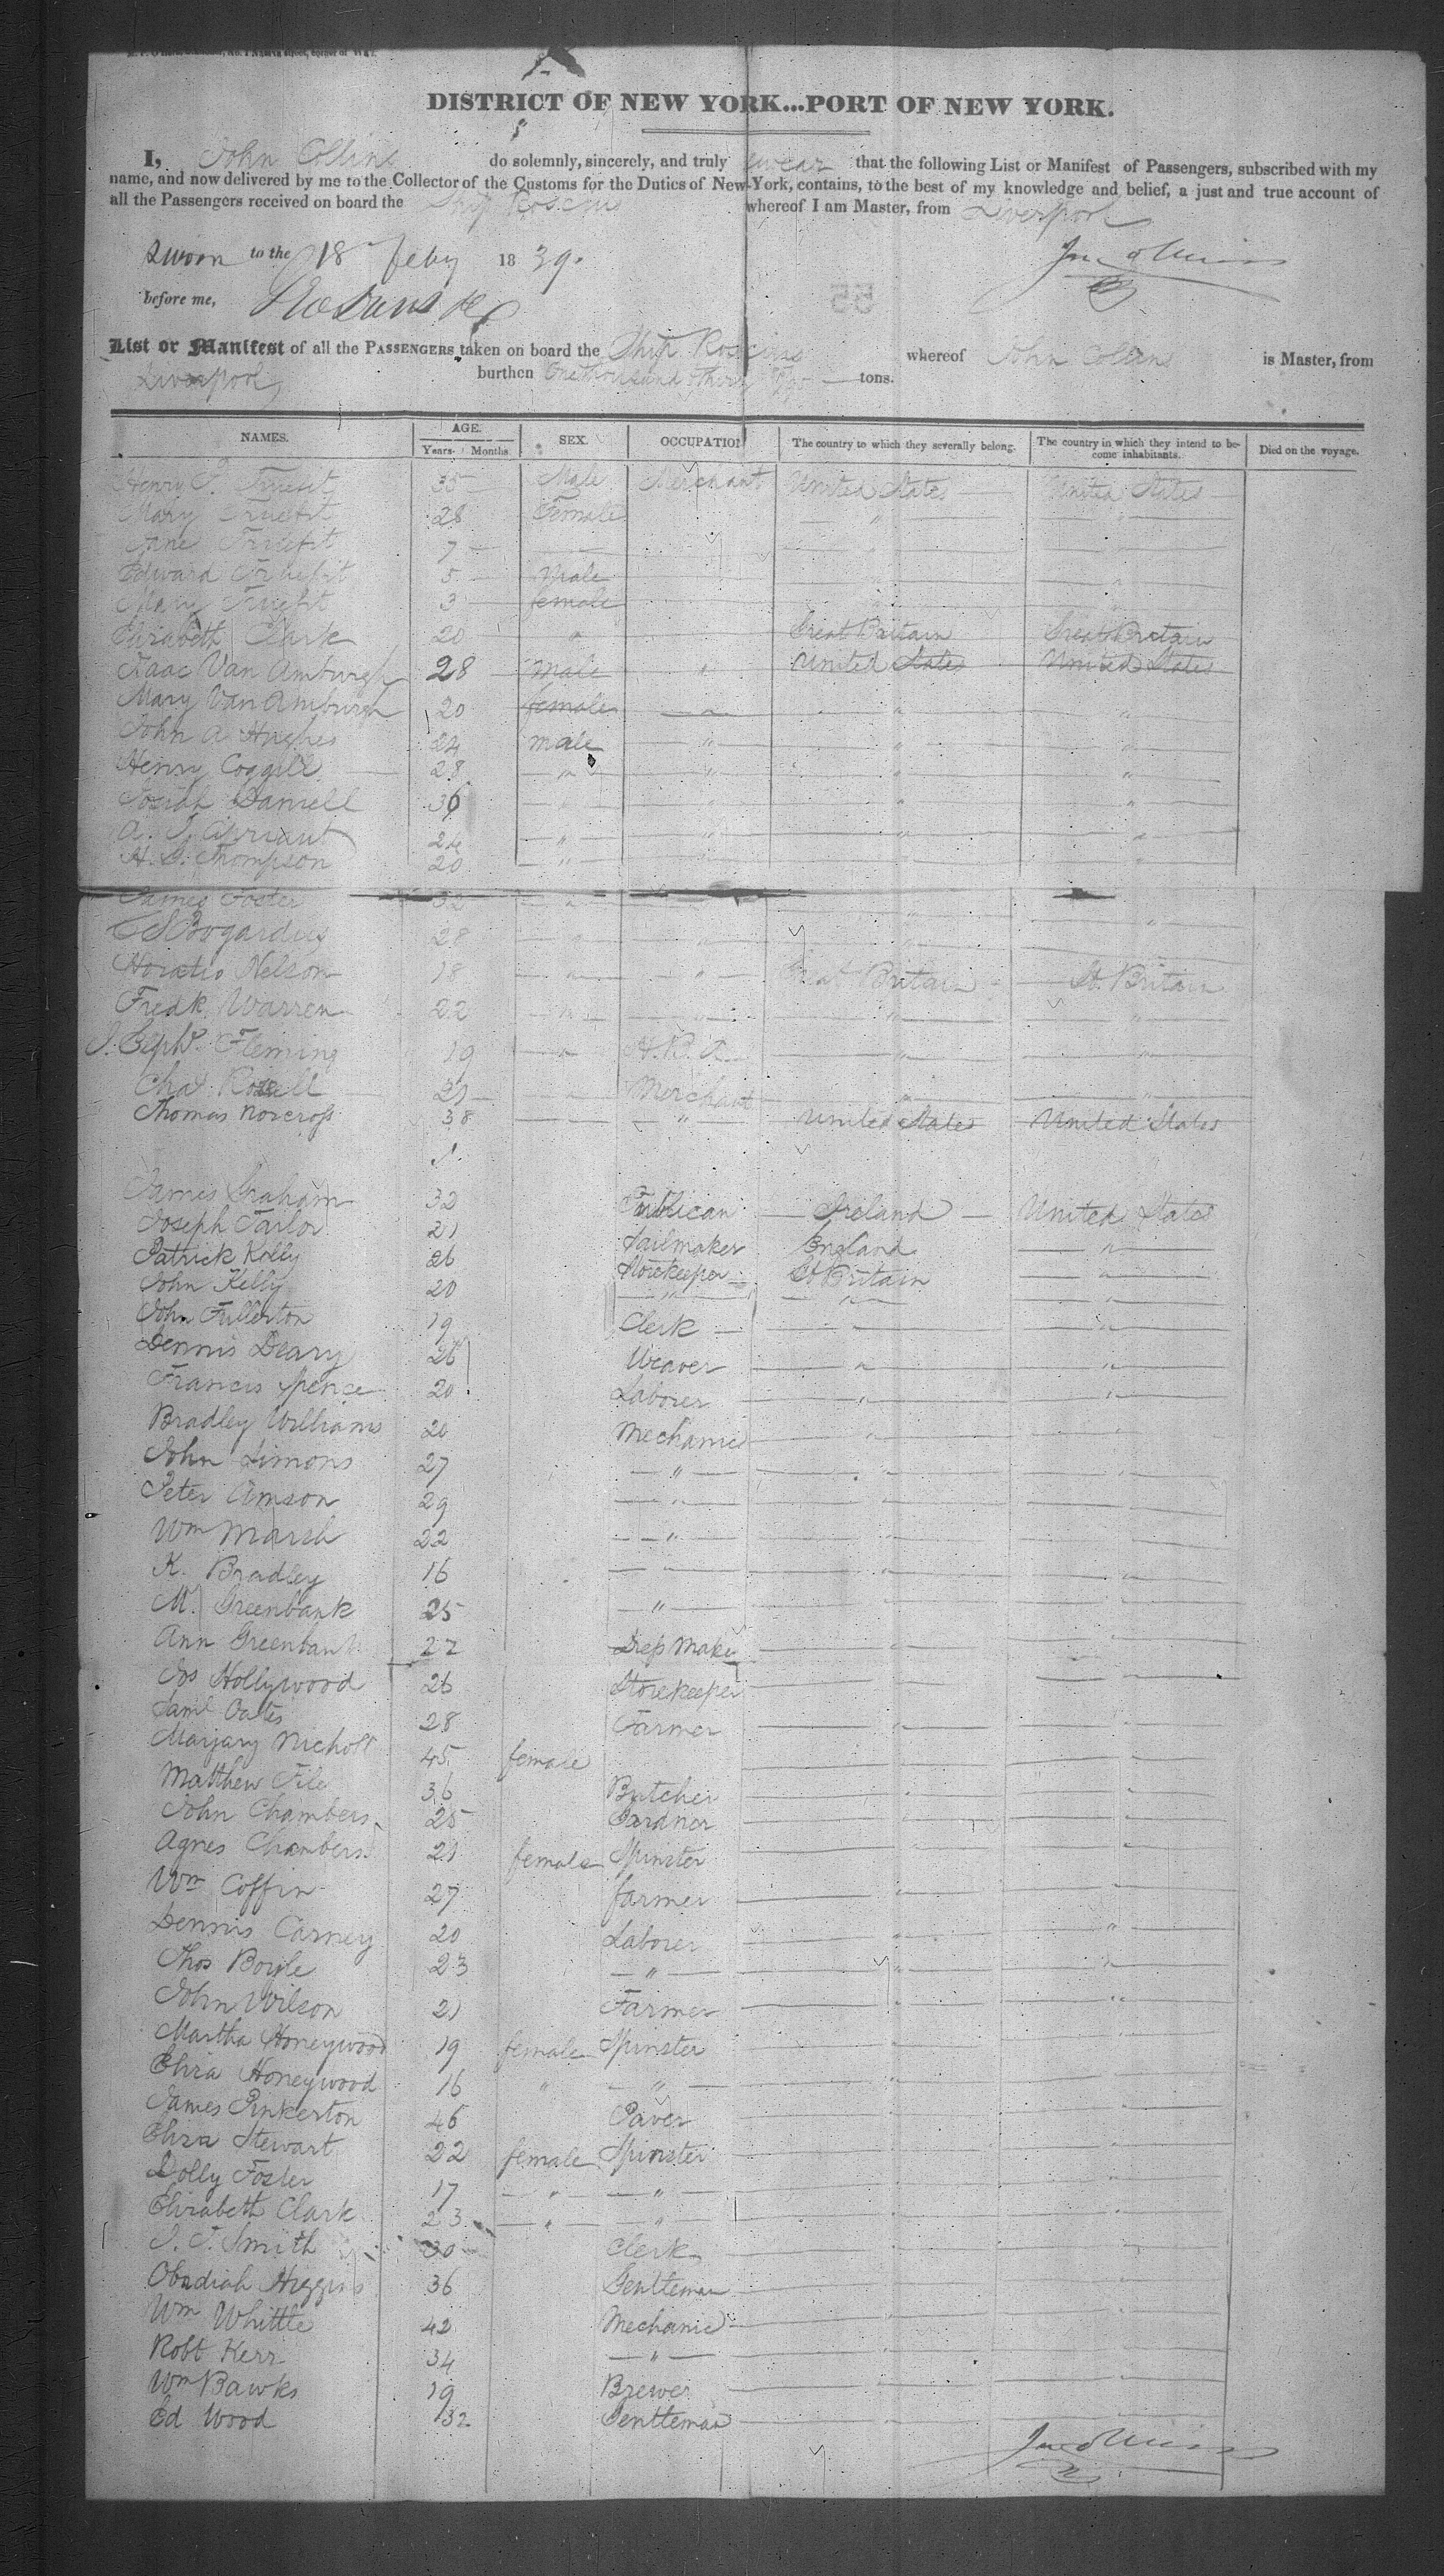 DISTRICT OF NEW YORK...PORT OF NEW YORK.
I, John Collins do solemnly, sincerely, and truly swear that the following List or Manifest of Passengers, subscribed with my
name, and now delivered by me to the Collector of the Customs for the Duties of New-York, contains, to the best of my knowledge and belief, a just and true account of
all the Passengers received on board the Ship Roscius whereof I am Master, from Liverpool
Sworn to the 18 Feby 1839.
before me,
List or Manifest of all the PASSENGERS taken on board the Ship Roscius whereof John Collins is Master, from
Liverpool burthen One thousand & thirty tons.
NAMES. AGE. Years. Months. SEX. OCCUPATION The country to which they severally belong. The country in which they intend to become inhabitants. Died on the voyage.
Henry 35 Male Merchant United States United States
Mary Truefit 28 Female " "
Jane Truefit 7
Edward Truefit 5 Male " "
Mary Truefit 3 female " "
Elizabeth Clark 20 " Great Britain Great Britain
Isaac Van Amburgh 28 male " United States United States
Mary Van Amburgh 20 female " " "
John A Hughes 24 male " " "
Henry Coggill 28 " " " "
Josiah 36 " " " "
A. 24 " " " "
H. Thompson 20 " " " "
James Foster 32 " "
Bogardus 28 " " " "
Horatio Nelson 18 " " Great Britain Gt. Britain
Fredk Warren 22 " " " "
Fleming 19 " " "
Chas 21 " Merchant " "
Thomas Norcross 38 " United States United States
James Graham 32 Publican Ireland United States
Joseph Tarlor 21 Sailmaker England "
Patrick Kolly 26 Storekeeper Gt Britain "
John Kelly 20 " " "
John Fullerton 19 Clerk " "
Dennis Deary 26 Weaver " "
Francis Spence 20 Laborer " "
Bradley Williams 20 Mechanic " "
John Simons 27 " " "
Peter Amson 29 " " "
Wm Marsh 22 " " "
K. Bradley 16 " " "
M. Greenbank 25 " " "
Ann Greenbank 22 Dress Maker " "
Jos Hollywood 26 Storekeeper " "
Saml Oates 28 Farmer " "
Marjary Nicholl 45 female " "
Matthew File 36 Butcher " "
John Chambers 25 Gardner " "
Agnes Chambers 21 female Spinster " "
Wm Coffin 27 farmer " "
Dennis Carney 20 Laborer " "
Thos Boyle 23 " " "
John Wilson 21 Farmer " "
Martha Honeywood 19 female Spinster " "
Eliza Honeywood 16 " " " "
James Pinkerton 46 Paver " "
Eliza Stewart 22 female Spinster " "
Dolly Foster 17 " " " "
Elizabeth Clark 23 " " " "
J. T. Smith 30 Clerk " "
Obadiah Higgins 36 Gentleman " "
Wm Whittle 42 Mechanic " "
Robt Kerr 34 " " "
Wm Bawks 19 Brewer " "
Ed Wood 32 Gentleman " "